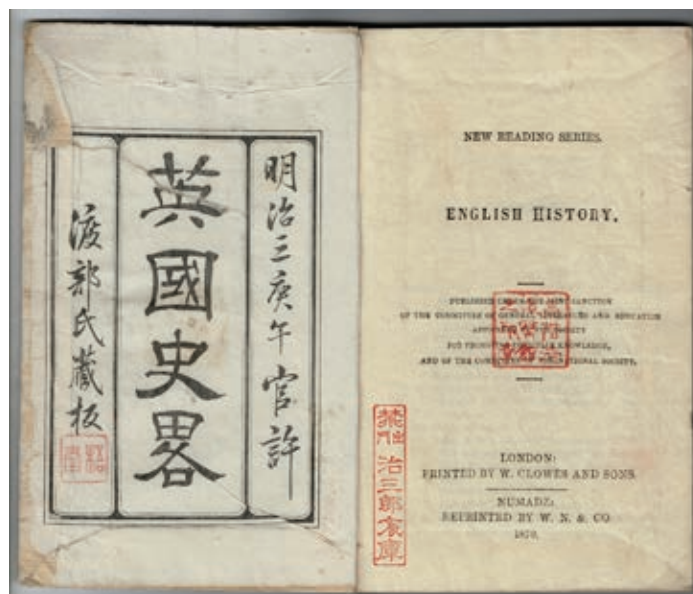 明治三庚午官許
英國史畧
渡部氏藏板
NEW READING SERIES.
ENGLISH HISTORY.
PUBLISHED UNDER THE SANCTION
OF THE COMMITTEE OF GENERAL LITERATURE AND EDUCATION
APPOINTED SOCIETY
FOR KNOWLEDGE,
AND OF THE NATIONAL SOCIETY.
治三郎
LONDON:
PRINTED BY W. CLOWES AND SONS.
NUMADZ:
REPRINTED BY W. N. & CO
1870.